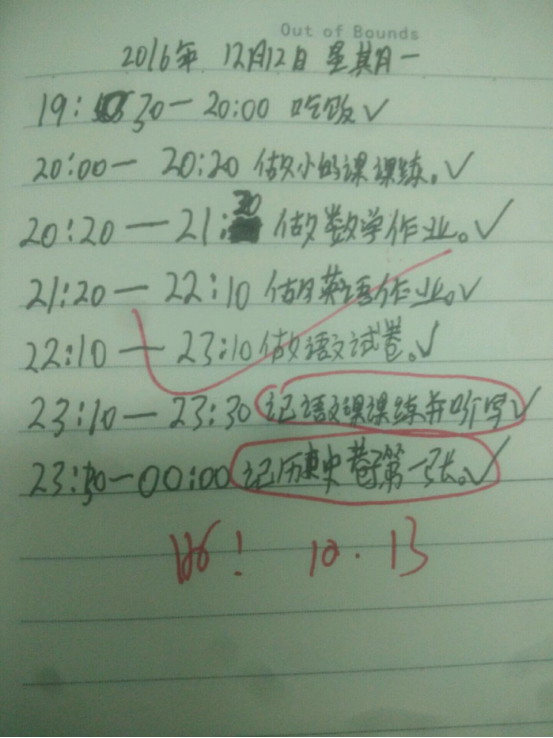 Out of Bounds
2016年 12月12日 星期一
19:30—20:00 吃饭√
20:00—20:20 做小的课课练。√
20:20—21:20 做数学作业。√
21:20—22:10 做英语作业。√
22:10—23:10 做语文试卷。√
23:10—23:30 记语文课课练并听写√
23:30—00:00 记历史卷子第一张。√
! 10.13